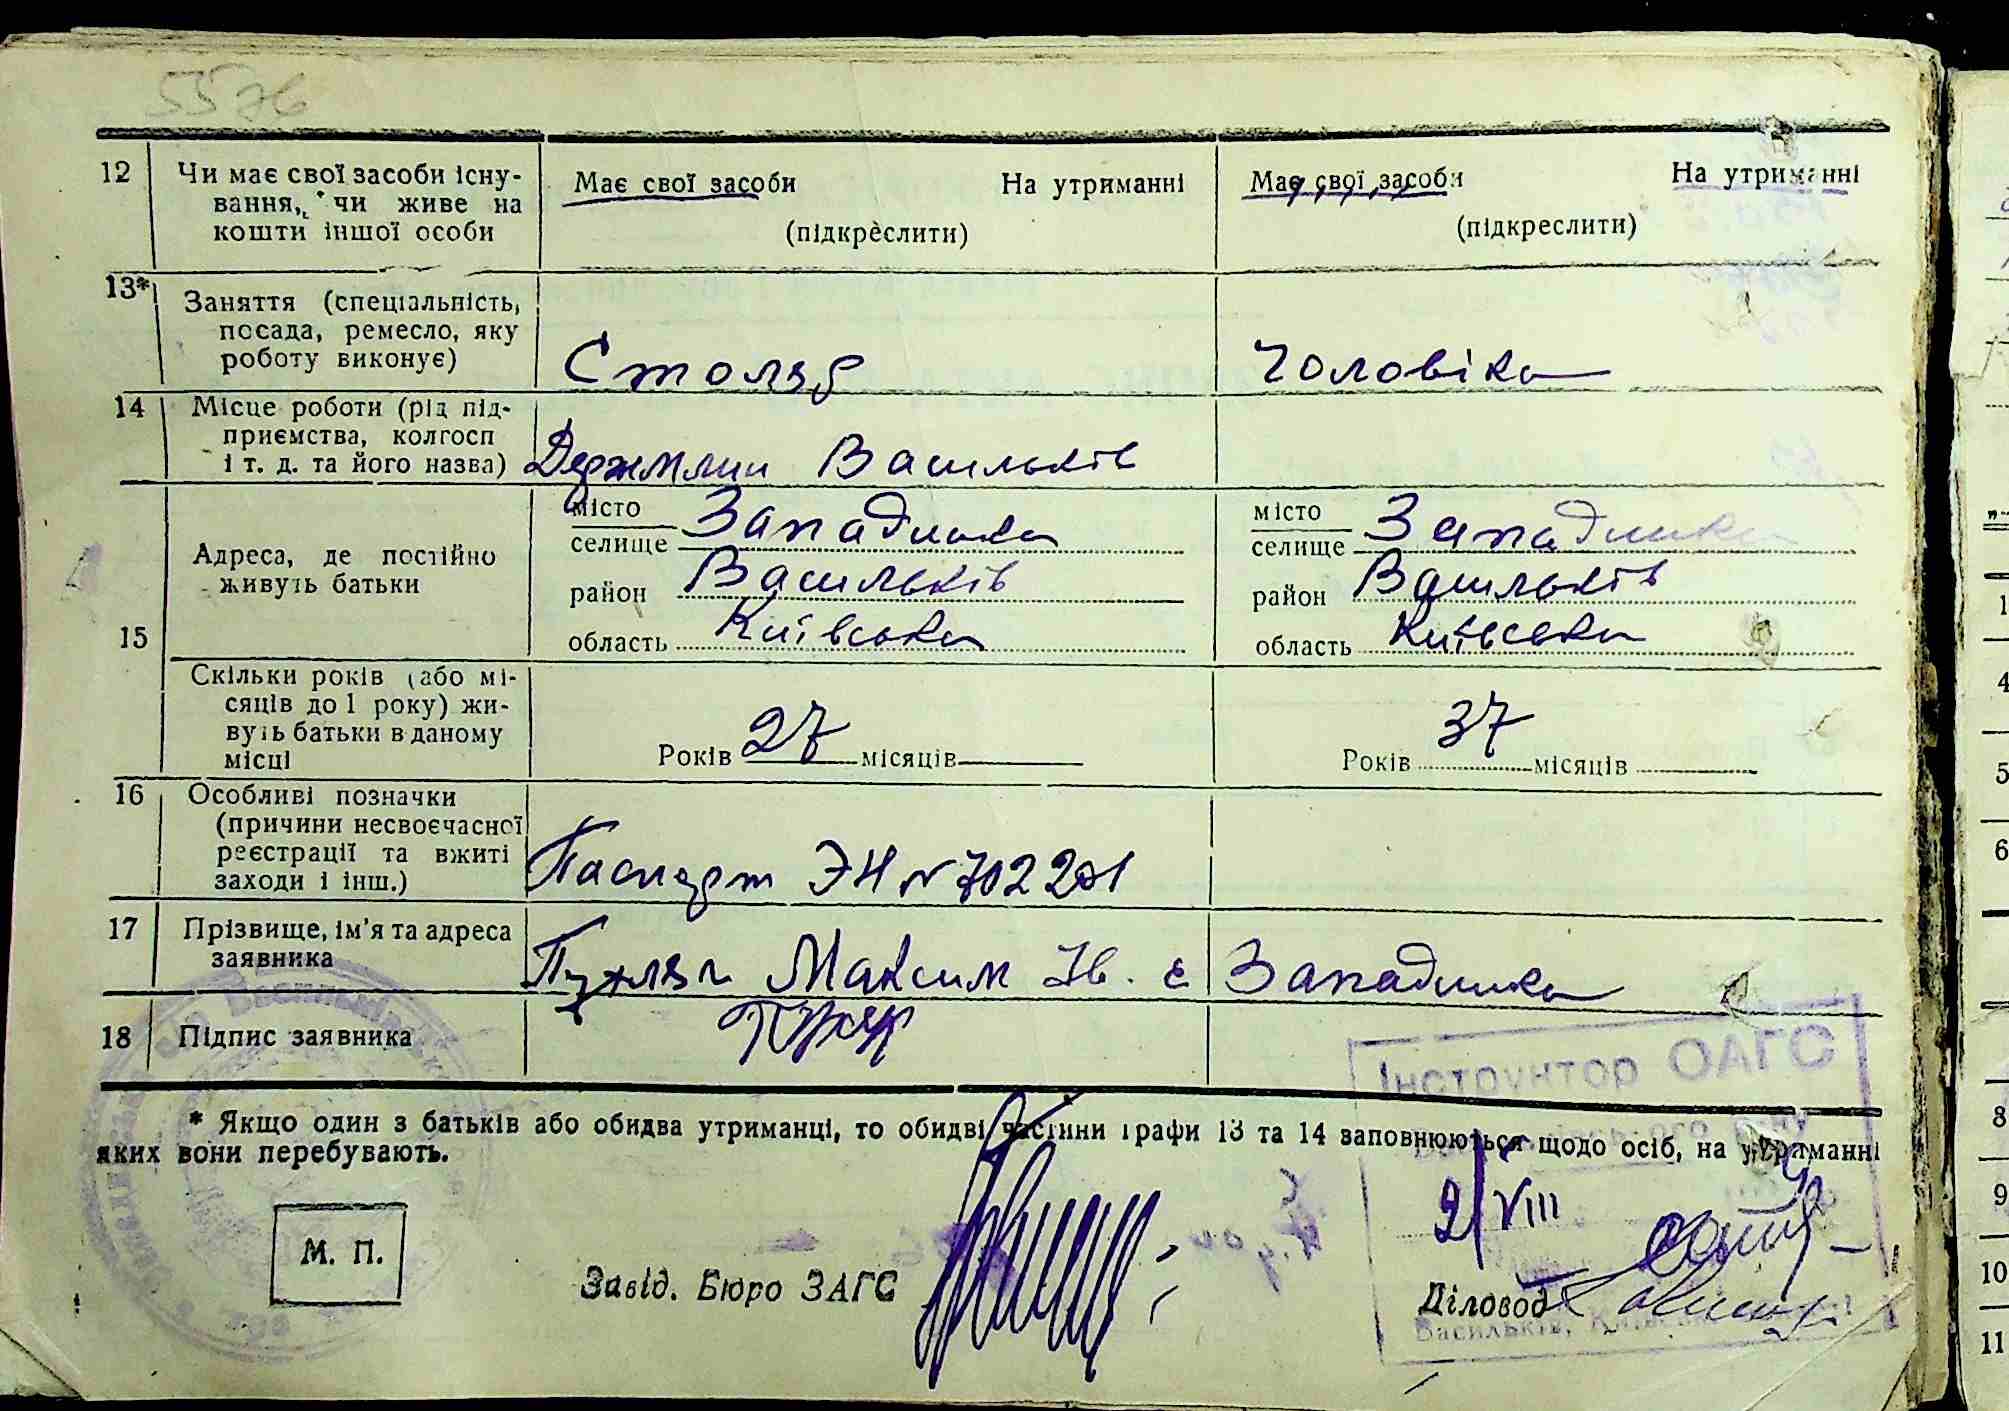 5576
12 Чи має свої засоби існу- Має свої засоби На утриманні Має свої засоби На утриманні
вання, чи живе на (підкреслити) (підкреслити)
кошти іншої особи
13* Заняття (спеціальність,
посада, ремесло, яку
роботу виконує) Столяр Чоловіка
14 Місце роботи (рід під-
приємства, колгосп
і т. д. та його назва) Держмлин Васильків
15 Адреса, де постійно
живуть батьки
місто
селище Западинка
район Васильків
область Київська
місто
селище Западинка
район Васильків
область Київська
Скільки років (або мі-
сяців до 1 року) жи-
вуть батьки в даному
місці Років 27 місяців Років 37 місяців
16 Особливі позначки
(причини несвоєчасної
реєстрації та вжиті
заходи і інш.) Паспорт ЭН №
17 Прізвище, ім'я та адреса
заявника Максим Ів. с Западинка
18 Підпис заявника
Інструктор ОАГС
* Якщо один з батьків або обидва утриманці, то обидві частини графи 13 та 14 заповнюються щодо осіб, на утриманні
яких вони перебувають.
2/VIII
М. П.
Завід. Бюро ЗАГС
Діловод
Васильків,
1
4
5
6
8
9
10
11